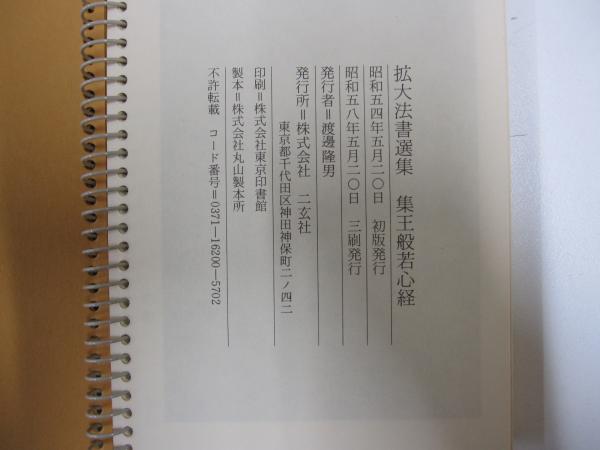 拡大法書選集　集王般若心経
昭和五四年五月二〇日　初版発行
昭和五八年五月二〇日　三刷発行
発行者＝渡邊隆男
発行所＝株式会社　二玄社
東京都千代田区神田神保町二ノ四二
印刷＝株式会社東京印書館
製本＝株式会社丸山製本所
不許転載　コード番号＝0371―16200―5702